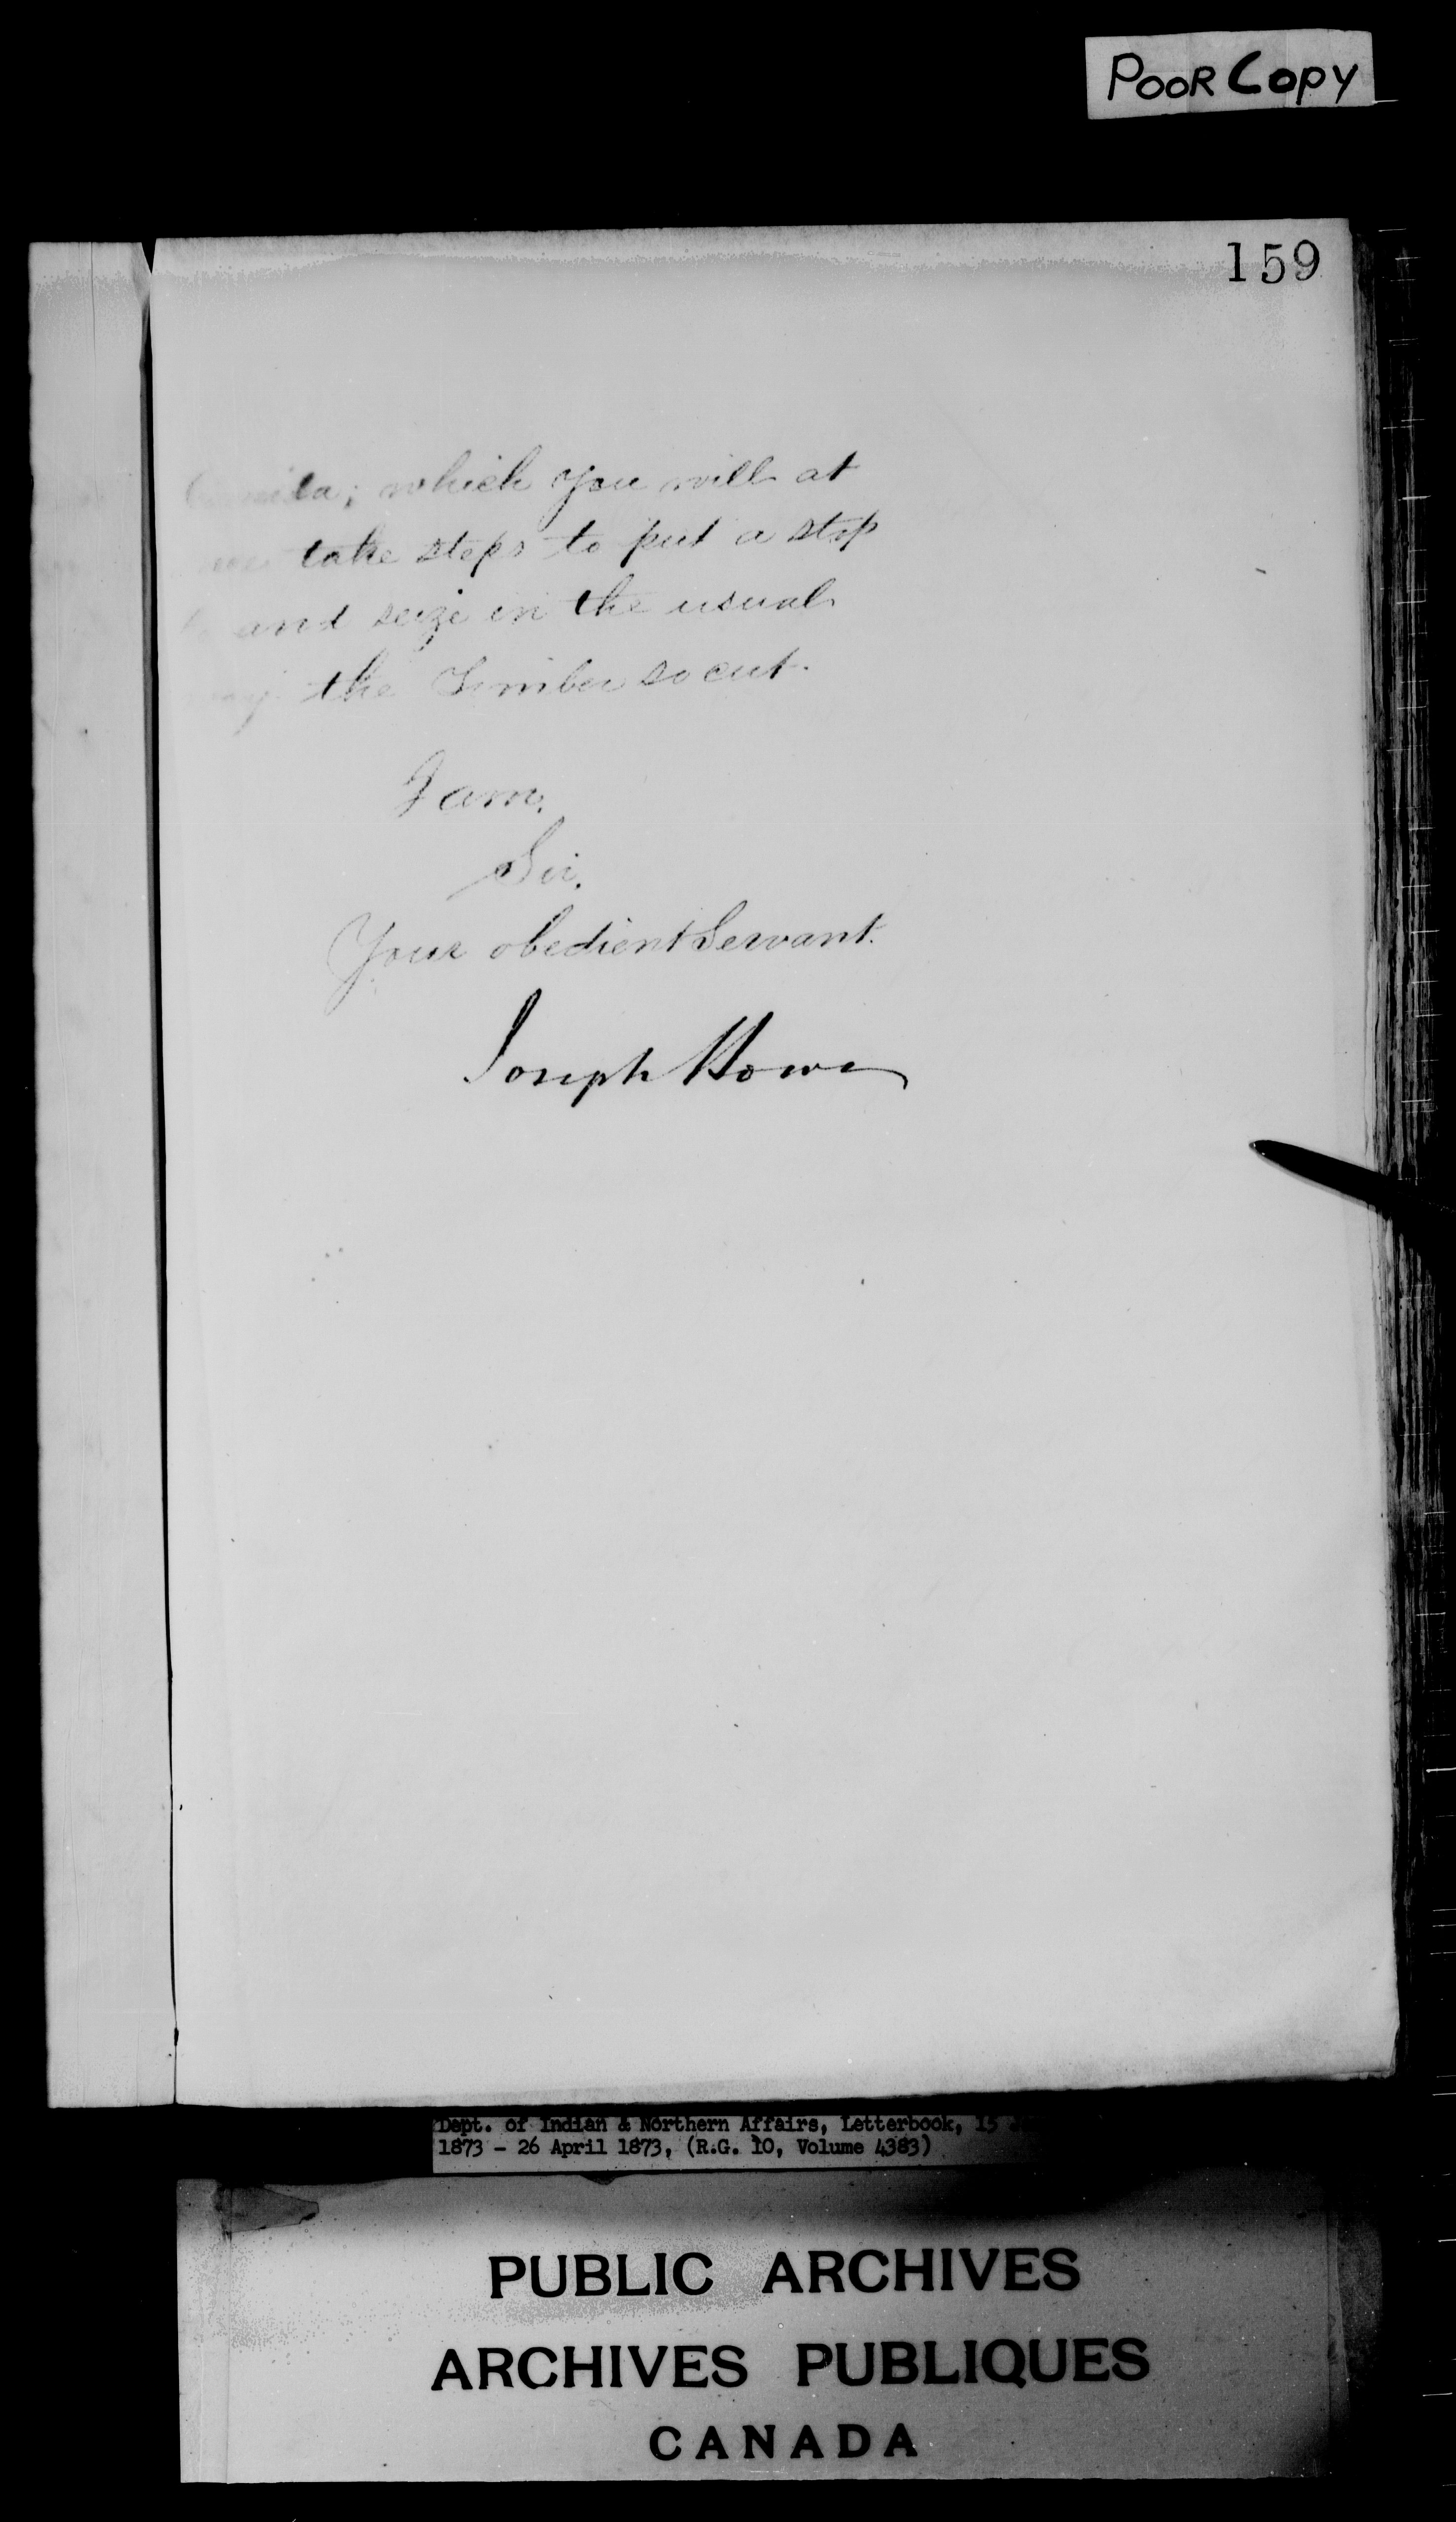 POOR COPY
159
which you will at
take steps to put a stop
and seize in the usual
the Timber so cut.
I am,
Sir,
Your obedient Servant.
Joseph Howe
Dept. of Indian & Northern Affairs, Letterbook, 15
1873 - 26 April 1873, (R.G. 10, Volume 4383)
PUBLIC ARCHIVES
ARCHIVES PUBLIQUES
CANADA